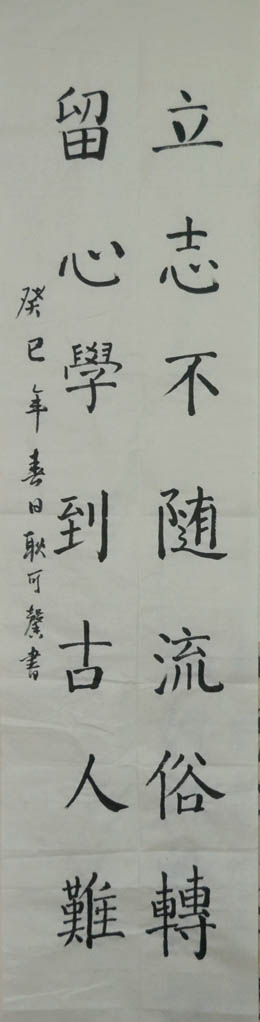 立志不随流俗轉
留心學到古人難
癸巳年春日耿可馨書